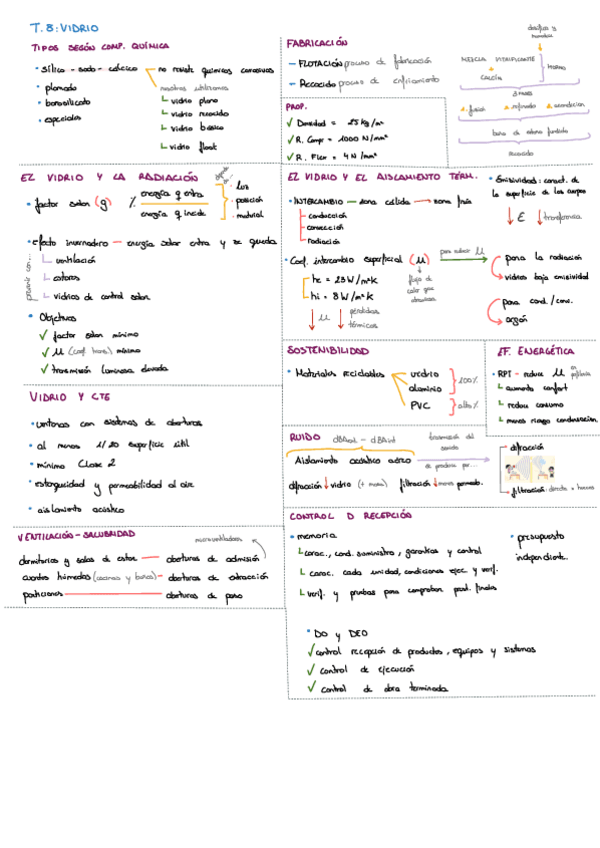 T. 8: VIDRIO
TIPOS SEGÚN COMP. QUÍMICA
• Sílico - sodo - cálcico — no resiste químicos corrosivos
nosotros utilizamos
vidrio plano
vidrio recocido
vidrio básico
vidrio float
• plomado
• borosilicato
• especiales
FABRICACIÓN
— FLOTACIÓN proceso de fabricación
— Recocido proceso de enfriamiento
MEZCLA VITRIFICANTE
+
calcín
HORNO
3 fases
1. fusión 2. refinado 3. acondicion
baño de estaño fundido
Recocido
PROP.
✓ Densidad = 25 kg/m²
✓ R. Compr = 1000 N/mm²
✓ R. Flex = 4 N/mm²
EL VIDRIO Y LA RADIACIÓN
• factor solar (g) % energía q entra
energía q incide
• luz
• posición
• material
• Efecto invernadero — energía solar entra y se queda
prevenir con...
ventilación
estores
vidrios de control solar
• Objetivos
✓ factor solar mínimo
✓ μ (coef. trans.) mínimo
✓ transmisión luminosa elevada
EL VIDRIO Y EL AISLAMIENTO TÉRM.
• INTERCAMBIO — zona cálida → zona fría
conducción
convección
radiación
• Emisividad: caract. de
la superficie de los cuerpos
↓ ε ↓ transferencia
• Coef. intercambio superficial (μ) para reducir μ
he = 23 W/m²K
hi = 8 W/m²K
flujo de
calor que
atraviesa
↓ μ ↓ pérdidas
térmicas
para la radiación
vidrios baja emisividad
para cond./conv.
argón
SOSTENIBILIDAD
• Materiales reciclables
vidrio
aluminio
100%
PVC
EF. ENERGÉTICA
• RPT - reduce μ en
perfilería
aumenta confort
reduce consumo
menos riesgo condensación
VIDRIO Y CTE
• ventanas con sistemas de aberturas
• al menos 1/20 superficie útil
• mínimo Clase 2
• estanqueidad y permeabilidad al aire
• aislamiento acústico
RUIDO
Aislamiento acústico aéreo
transmisión del
sonido
se produce por...
difracción ↓ vidrio (+ masa) filtración ↓ menos permeab.
difracción
filtración: directa + huecos
VENTILACIÓN - SALUBRIDAD
microventiladores
dormitorios y salas de estar — aberturas de admisión
cuartos húmedos (cocinas y baños) — aberturas de extracción
particiones — aberturas de paso
CONTROL D RECEPCIÓN
• memoria
carac., cond. suministro, garantías y control
carac. cada unidad, condiciones ejec y verif.
verif. y pruebas para comprobar prest. finales
• presupuesto
independiente.
• DO y DEO
✓ control recepción de productos, equipos y sistemas
✓ control de ejecución
✓ control de obra terminada